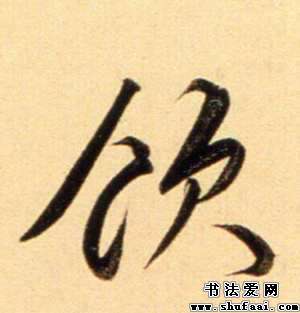 领
书法爱网
www.shufaai.com